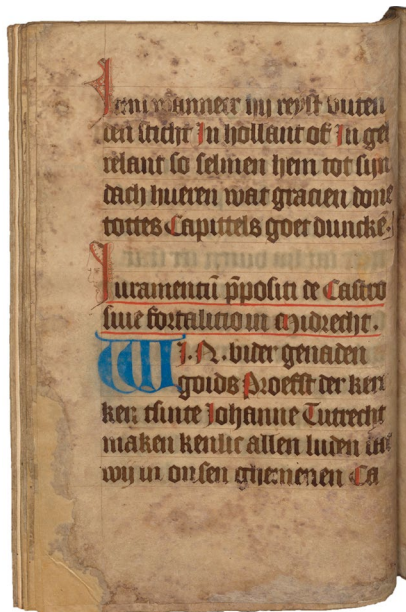 Item wanneer hy reyst buten
den sticht In hollant of In gel
relant so selmen hem tot sijn
dach hueren wat gracien done
tottes Capittels goet duncke.
Iuramentū p̄positi de Castro
siue fortalitio in Midrecht.
WI. N. bider genaden
goids Proefst der ker
ken tsinte Johanne Tutrecht
maken kenlic allen luden dat
wij in onsen ghemenen Ca